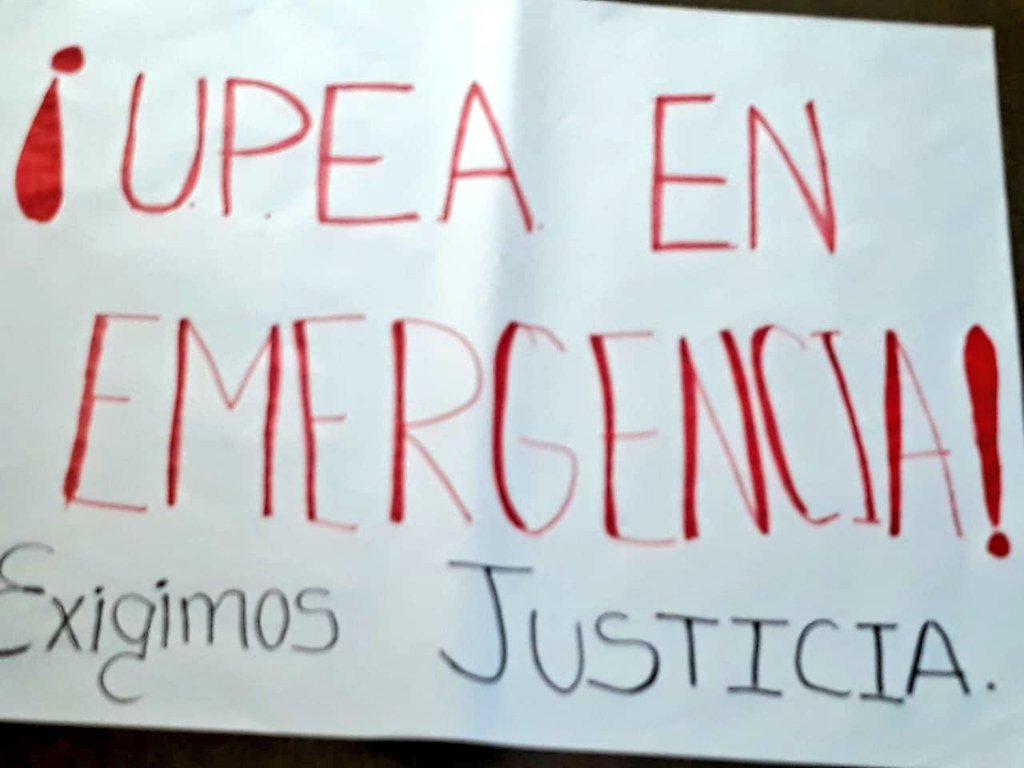 ¡U.P.E.A. EN
EMERGENCIA!
Exigimos JUSTICIA.